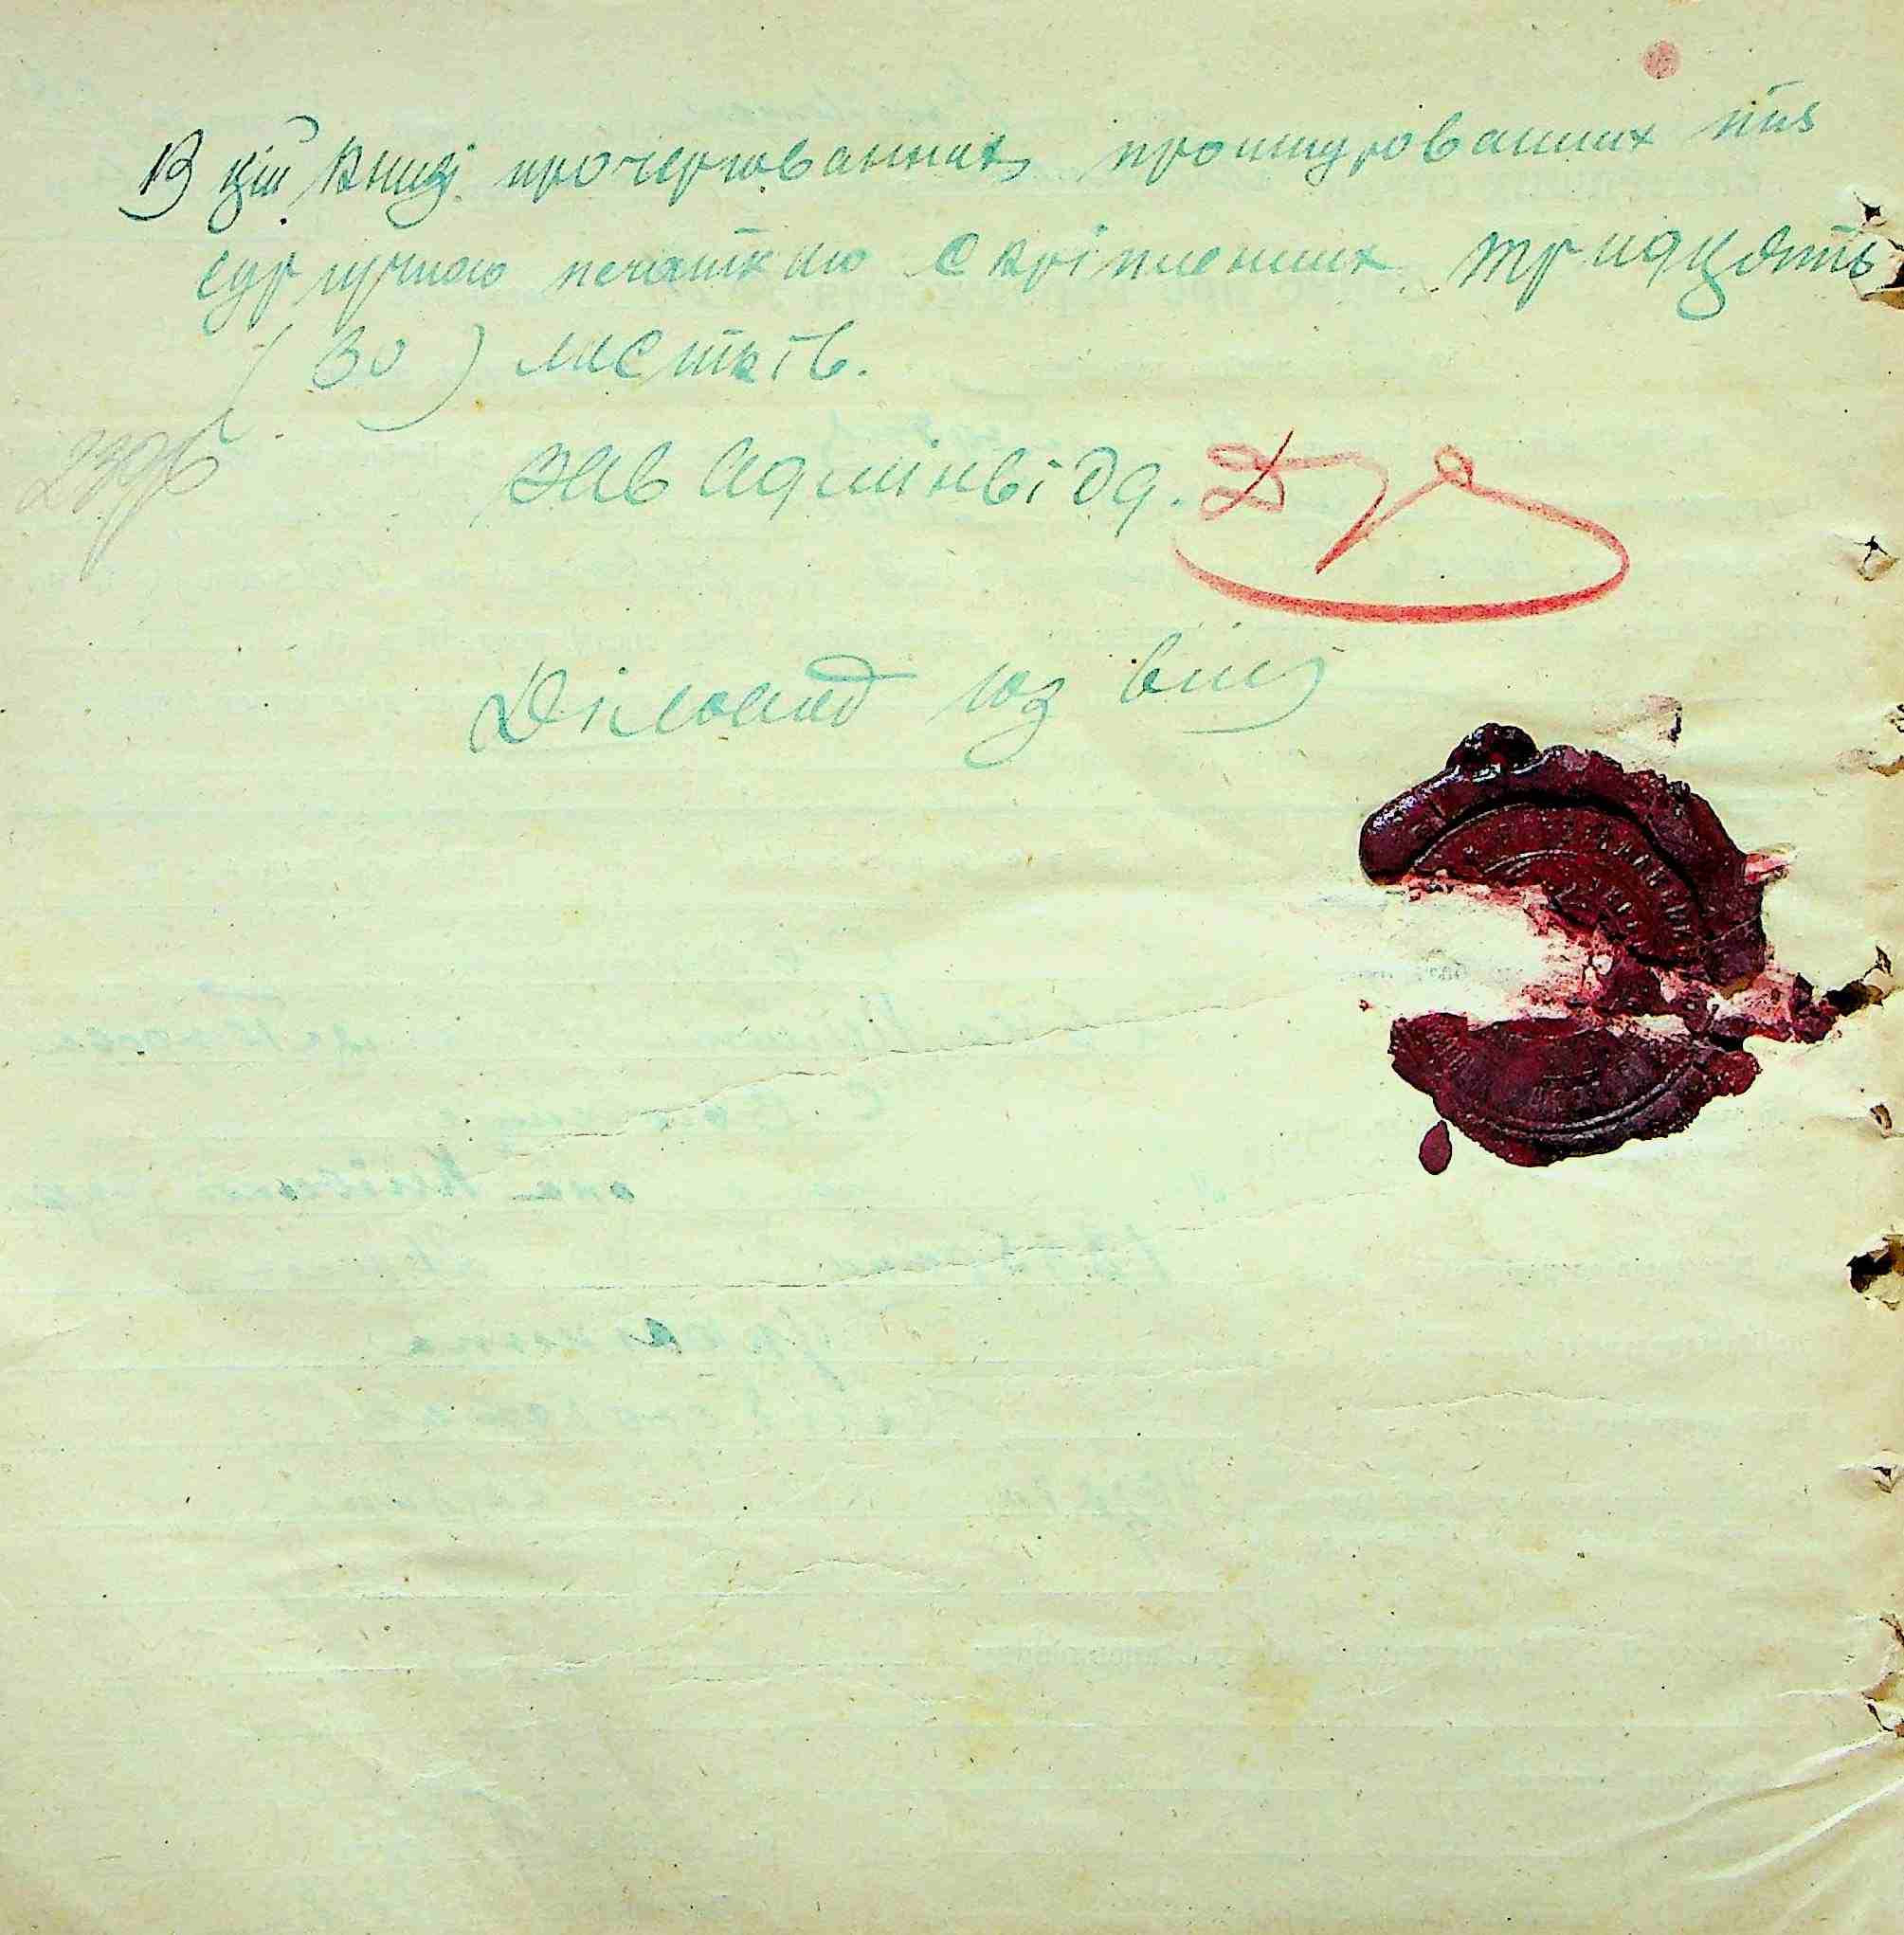 В цій книзі прочергованних прошнурованих та
сургучною печаткою скріплених тридцять
(30) листків.
Зав Адмінвідд.
Діловод